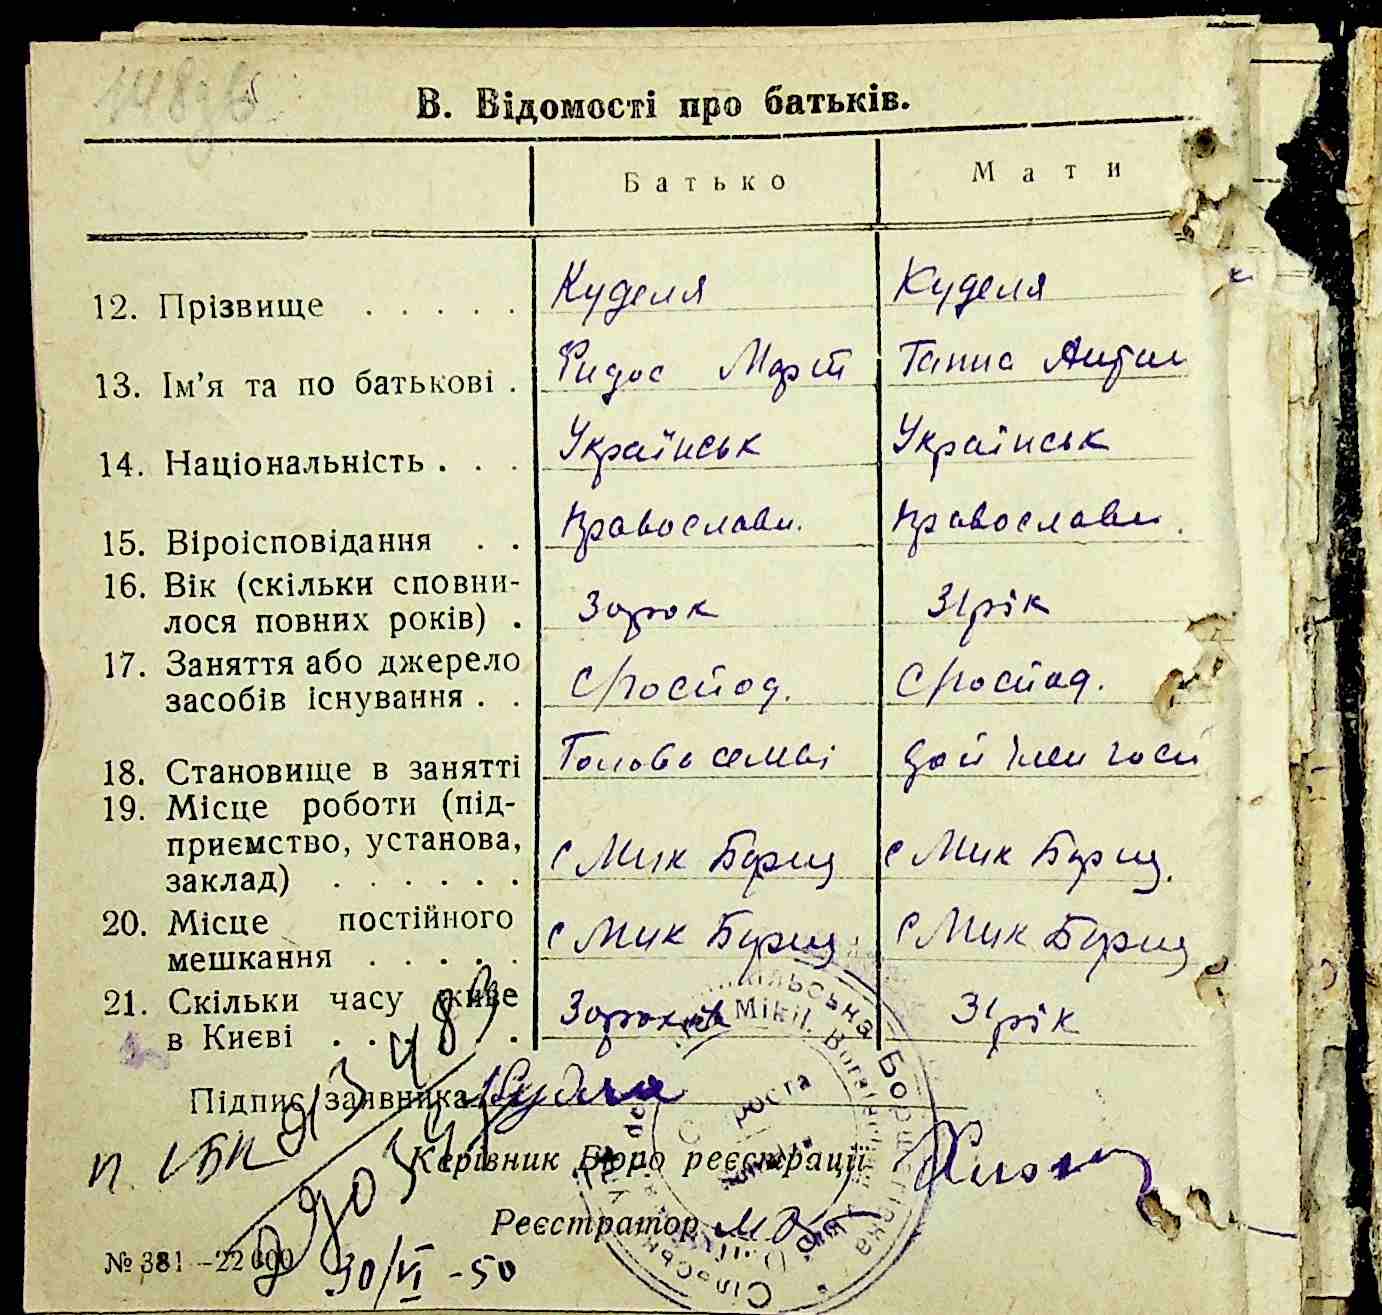 В. Відомості про батьків.
Батько Мати
12. Прізвище . . . . . Куделя Куделя
13. Ім'я та по батькові . Март Ганна
14. Національність . . . Українськ Українськ
15. Віроісповідання . . Православн. Православн.
16. Вік (скільки сповни-
лося повних років) . 30 рок 31 рік
17. Заняття або джерело
засобів існування . . с/господ. с/господ.
18. Становище в занятті Голова семьі член госп
19. Місце роботи (під-
приємство, установа,
заклад) . . . . . . с Мик Борщ с Мик Борщ.
20. Місце постійного
мешкання . . . . . с Мик Борщ с Мик Борщ
21. Скільки часу живе
в Києві . . . . . . 30 років 31 рік
Підпис заявника Куделя
Керівник Бюро реєстрації
Реєстратор
№ 381 - 22 000 30/VI - 50
Староста